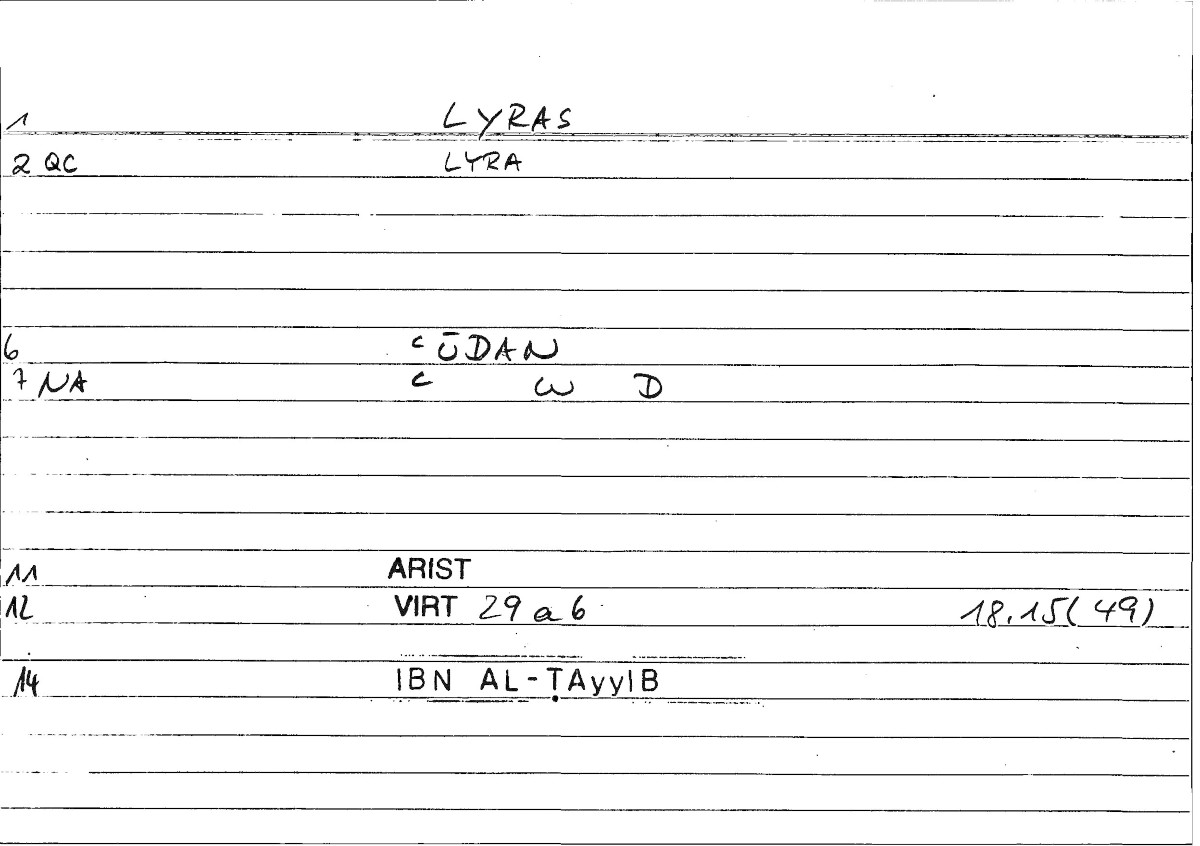 1 LYRAS
2 QC LYRA
6 ᶜŪDAN
7 NA ᶜ W D
11 ARIST
12 VIRT 29 a 6 18.15(49)
14 IBN AL-ṬAyyIB